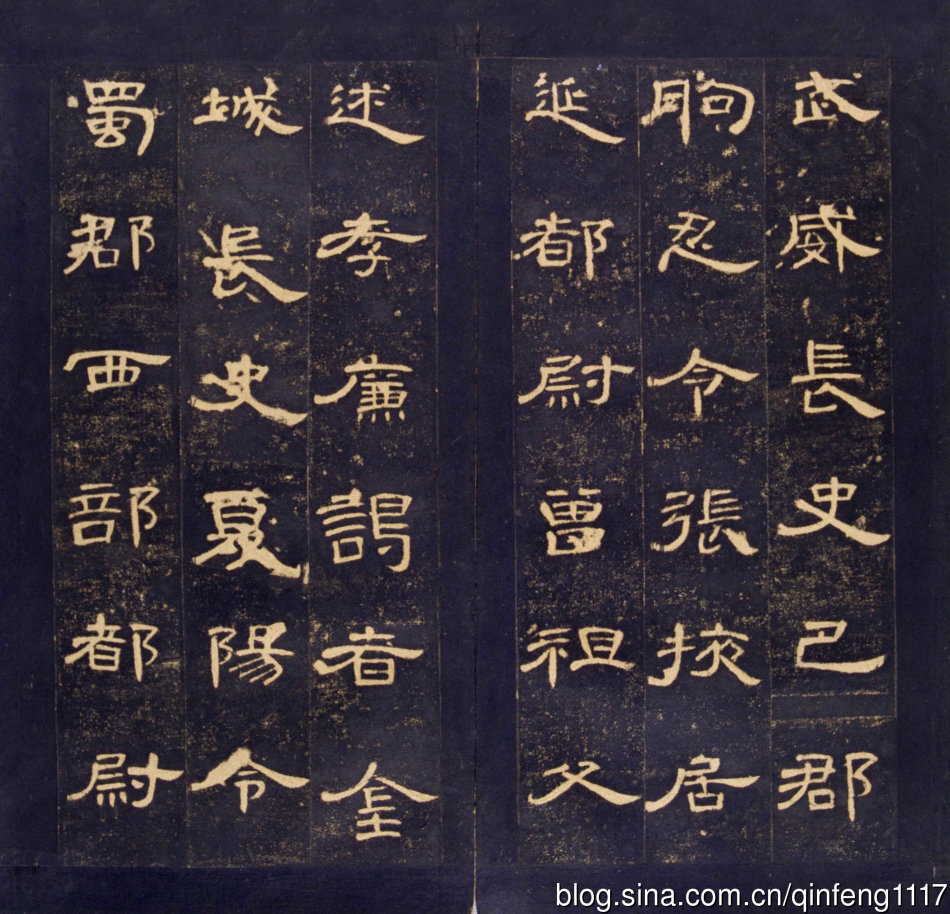 武威長史巴郡
朐忍令張掖居
延都尉曾祖父
述孝廉謁者金
城長史夏陽令
蜀郡西部都尉
blog.sina.com.cn/qinfeng1117